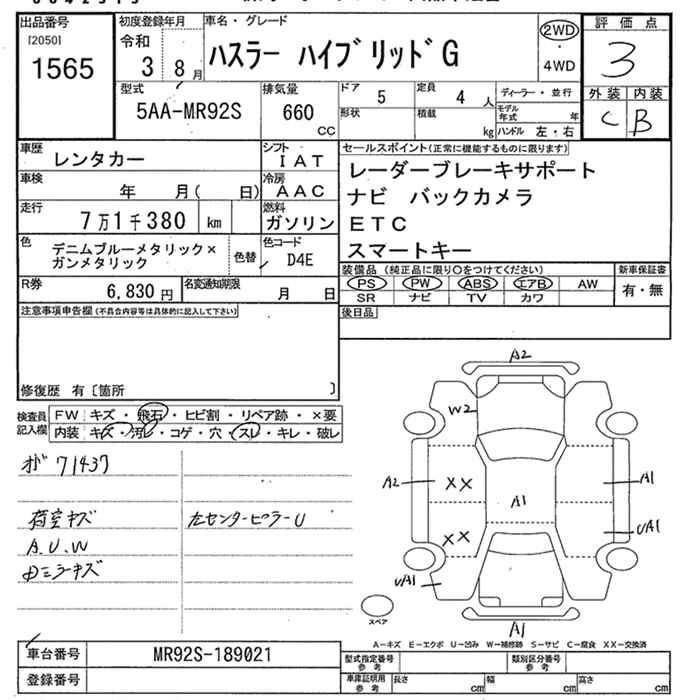 出品番号
[2050]
1565
初度登録年月
令和
3 8月
車名・グレード
ハスラー ハイブリッドG
2WD
・
4WD
評価点
3
外装 内装
C B
型式
5AA-MR92S
排気量
660
CC
ドア 5
定員 4 人
ディーラー・並行
形状
積載 kg
モデル年式 年
ハンドル 左・右
車歴 レンタカー
シフト IAT
車検 年 月( 日)
冷房 AAC
走行 7万1千380 km
燃料 ガソリン
色 デニムブルーメタリック×
ガンメタリック
色替
色コード D4E
R券 6,830円
名変通知期限 月 日
セールスポイント(正常に機能するものに限ります)
レーダーブレーキサポート
ナビ バックカメラ
ETC
スマートキー
装備品(純正品に限り○をつけてください)
PS PW ABS エアB AW
SR ナビ TV カワ
新車保証書
有・無
後日品
注意事項申告欄(不具合内容等は具体的に記入して下さい)
修復歴 有〔箇所 〕
検査員
記入欄
FW キズ・飛石・ヒビ割・リペア跡・×要
内装 キズ・汚レ・コゲ・穴・スレ・キレ・破レ
71437
荷室キズ
左センターピラーU
A.U.W
ミラーキズ
A2
W2
A2
XX
A1
A1
XX
UA1
UA1
A1
スペア
A-キズ E-エクボ U-凹み W-補修跡 S-サビ C-腐食 XX-交換済
車台番号 MR92S-189021
登録番号
型式指定番号
参考
類別区分番号
参考
車庫証明用
参考
長さ cm
幅 cm
高さ cm